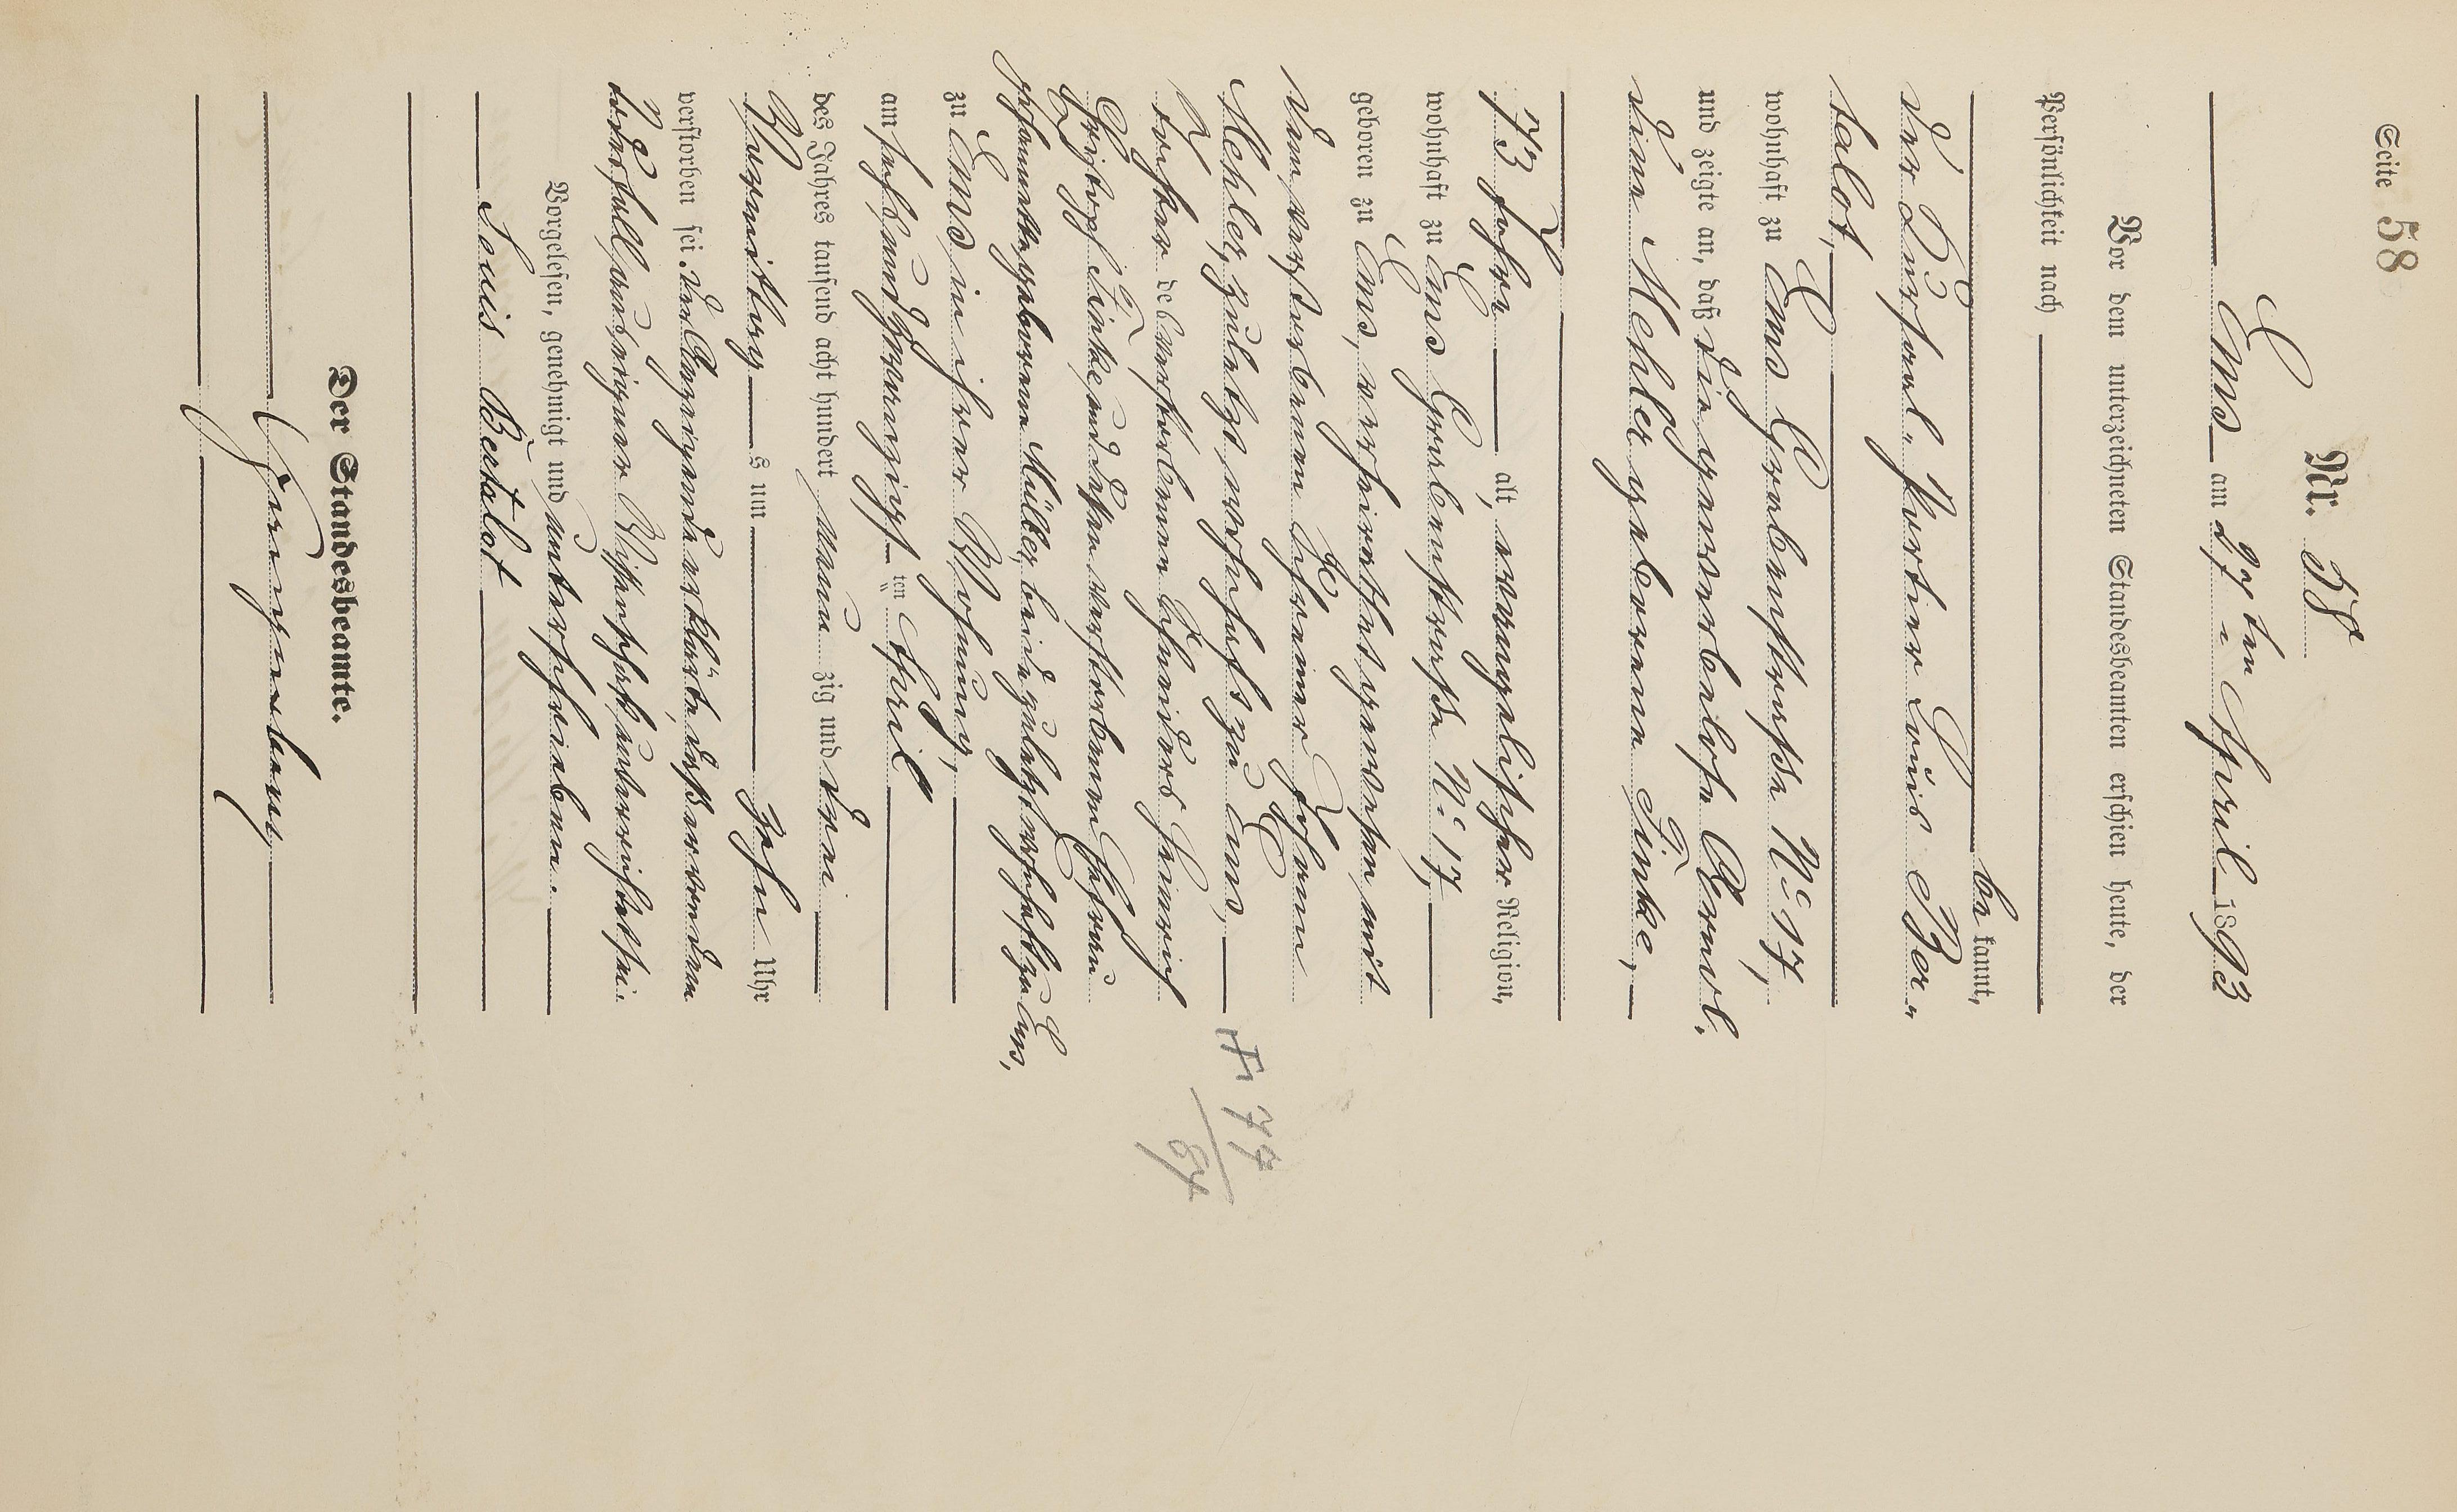 Seite 58
Nr. 58
Ems am 27ten April 1893
Vor dem unterzeichneten Standesbeamten erschien heute, der
Persönlichkeit nach
be kannt,
der Kursaal-Portier Louis Ber-
talot,
wohnhaft zu Ems Grabenstraße No 17,
und zeigte an, daß die gewerbelose Anval.
dine Mehler geborene Finke,
73 Jahre alt, evangelischer Religion,
wohnhaft zu Ems Grabenstraße No 17,
geboren zu Ems, verheirathet gewesen mit
dem verstorbenen Johann
Mehler, zuletzt wohnhaft zu Ems,
Tochter de s verstorbenen Heinrich
Finke und dessen verstorbenen Ehefrau
geborenen Müller, beide zuletzt wohnhaft zu Ems,
zu Ems in ihrer Wohnung,
am sechsundzwanzigsten ten April
des Jahres tausend acht hundert neun zig und drei
Vormittag s um zehn Uhr
verstorben sei. Der Anzeigende erklärte, daß er von dem
Todesfall aus eigener Wissenschaft unterrichtet sei.
Vorgelesen, genehmigt und unterschrieben.
Louis Bertalot
Der Standesbeamte.